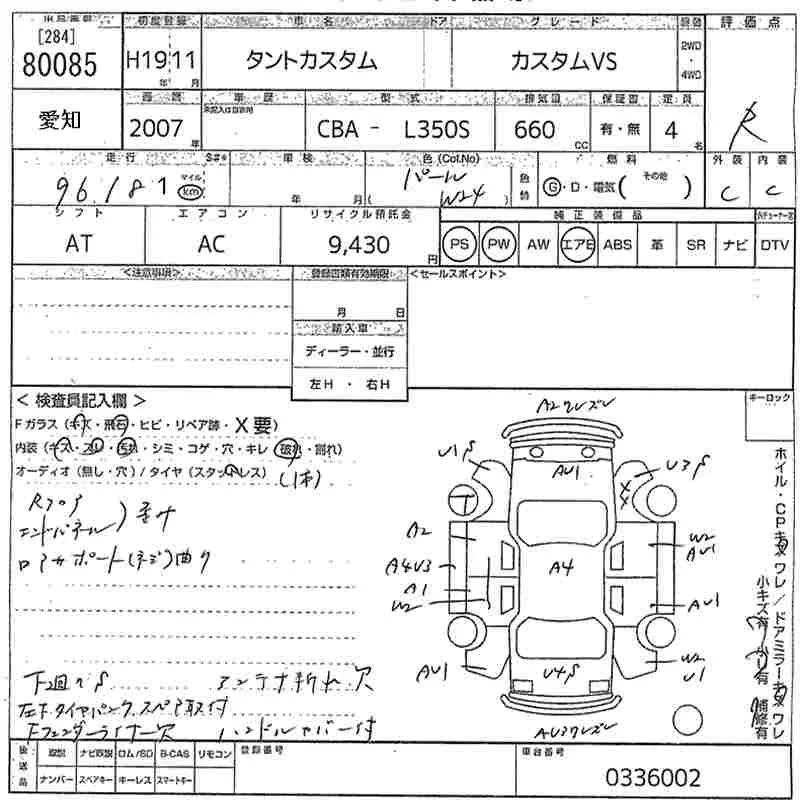 [284]
80085
初度登録
H19 11
年 月
車名
ドア
グレード
タントカスタム
カスタムVS
2WD
・
4WD
評価点
R
愛知
2007
年
車歴
型式
CBA - L350S
排気量
660
CC
保証書
有・無
定員
4
名
走行
96,181
マイル
km
車検
年 月
色(Col.No)
パール
W24
燃料
G・D・電気( その他 )
外装
C
内装
C
シフト
AT
エアコン
AC
リサイクル預託金
9,430
円
純正装備品
PS
PW
AW
エアB
ABS
革
SR
ナビ
DTV
<注意事項>
登録書類有効期限
月 日
輸入車
ディーラー・並行
左H ・ 右H
<セールスポイント>
< 検査員記入欄 >
Fガラス(キズ・飛石・ヒビ・リペア跡・X要)
内装(キズ・スレ・汚れ・シミ・コゲ・穴・キレ・破れ・割れ)
オーディオ(無し・穴)/タイヤ(スタッドレス)
(1本)
Rフロア
エンドパネル
ロアサポート(ネジ)曲り
下廻りS
アンテナ折れ欠
左Fタイヤパンク スペア取付
Fフェンダーライナー欠
ハンドルカバー付
A2ワレズレ
U1S
AU1
U3S
A2
A4U3
A1
W2
A4
W2
AU1
AU1
AU1
U4S
W2
U1
AU3ワレズレ
キーロック
ホイル・CPキズワレ/ドアミラーキズワレ
小キズ有
補修有
後送品
取説
ナビ取説
ロム/SD
B-CAS
リモコン
ナンバー
スペアキー
キーレス
スマートキー
登録番号
車台番号
0336002